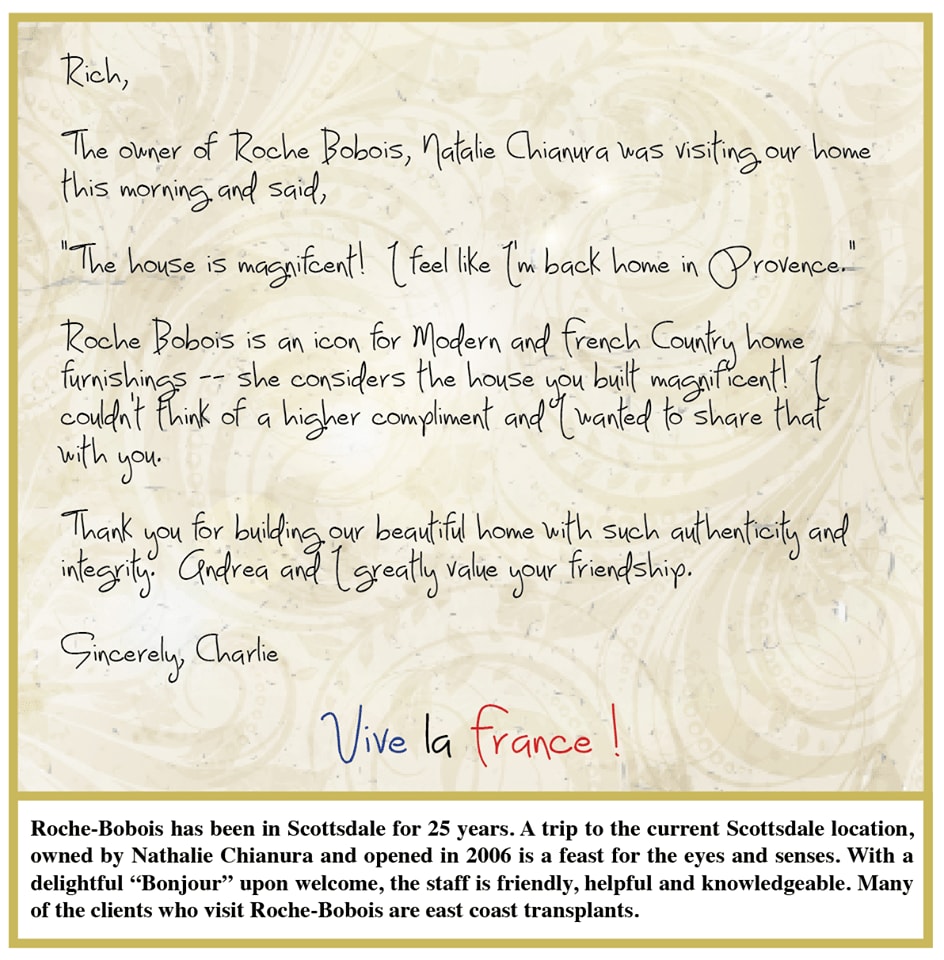 Rich,
The owner of Roche Bobois, Natalie Chianura was visiting our home
this morning and said,
"The house is magnifcent! I feel like I'm back home in Provence."
Roche Bobois is an icon for Modern and French Country home
furnishings -- she considers the house you built magnificent! I
couldn't think of a higher compliment and I wanted to share that
with you.
Thank you for building our beautiful home with such authenticity and
integrity. Andrea and I greatly value your friendship.
Sincerely, Charlie
Vive la France !
Roche-Bobois has been in Scottsdale for 25 years. A trip to the current Scottsdale location,
owned by Nathalie Chianura and opened in 2006 is a feast for the eyes and senses. With a
delightful “Bonjour” upon welcome, the staff is friendly, helpful and knowledgeable. Many
of the clients who visit Roche-Bobois are east coast transplants.